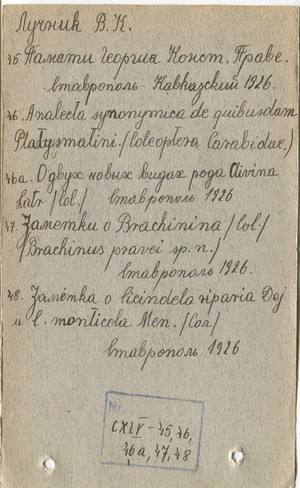 Лучник В.К.
45 Памяти Георгия Конст. Праве.
Ставрополь-Кавказский 1926.
46. Analecta synonymica de quibusdam
Platysmatini. /Coleoptera Carabidae./
46а. О двух новых видах рода Clivina
Latr /Col./ Ставрополь 1926
47. Заметки о Brachinina /Col./
/Brachinus pravei sp. n./
Ставрополь 1926.
48. Заметка о Cicindela riparia Dej
и C. monticola Men. /Col/
Ставрополь 1926
Nr.
CXLIV-45, 46,
46a, 47, 48